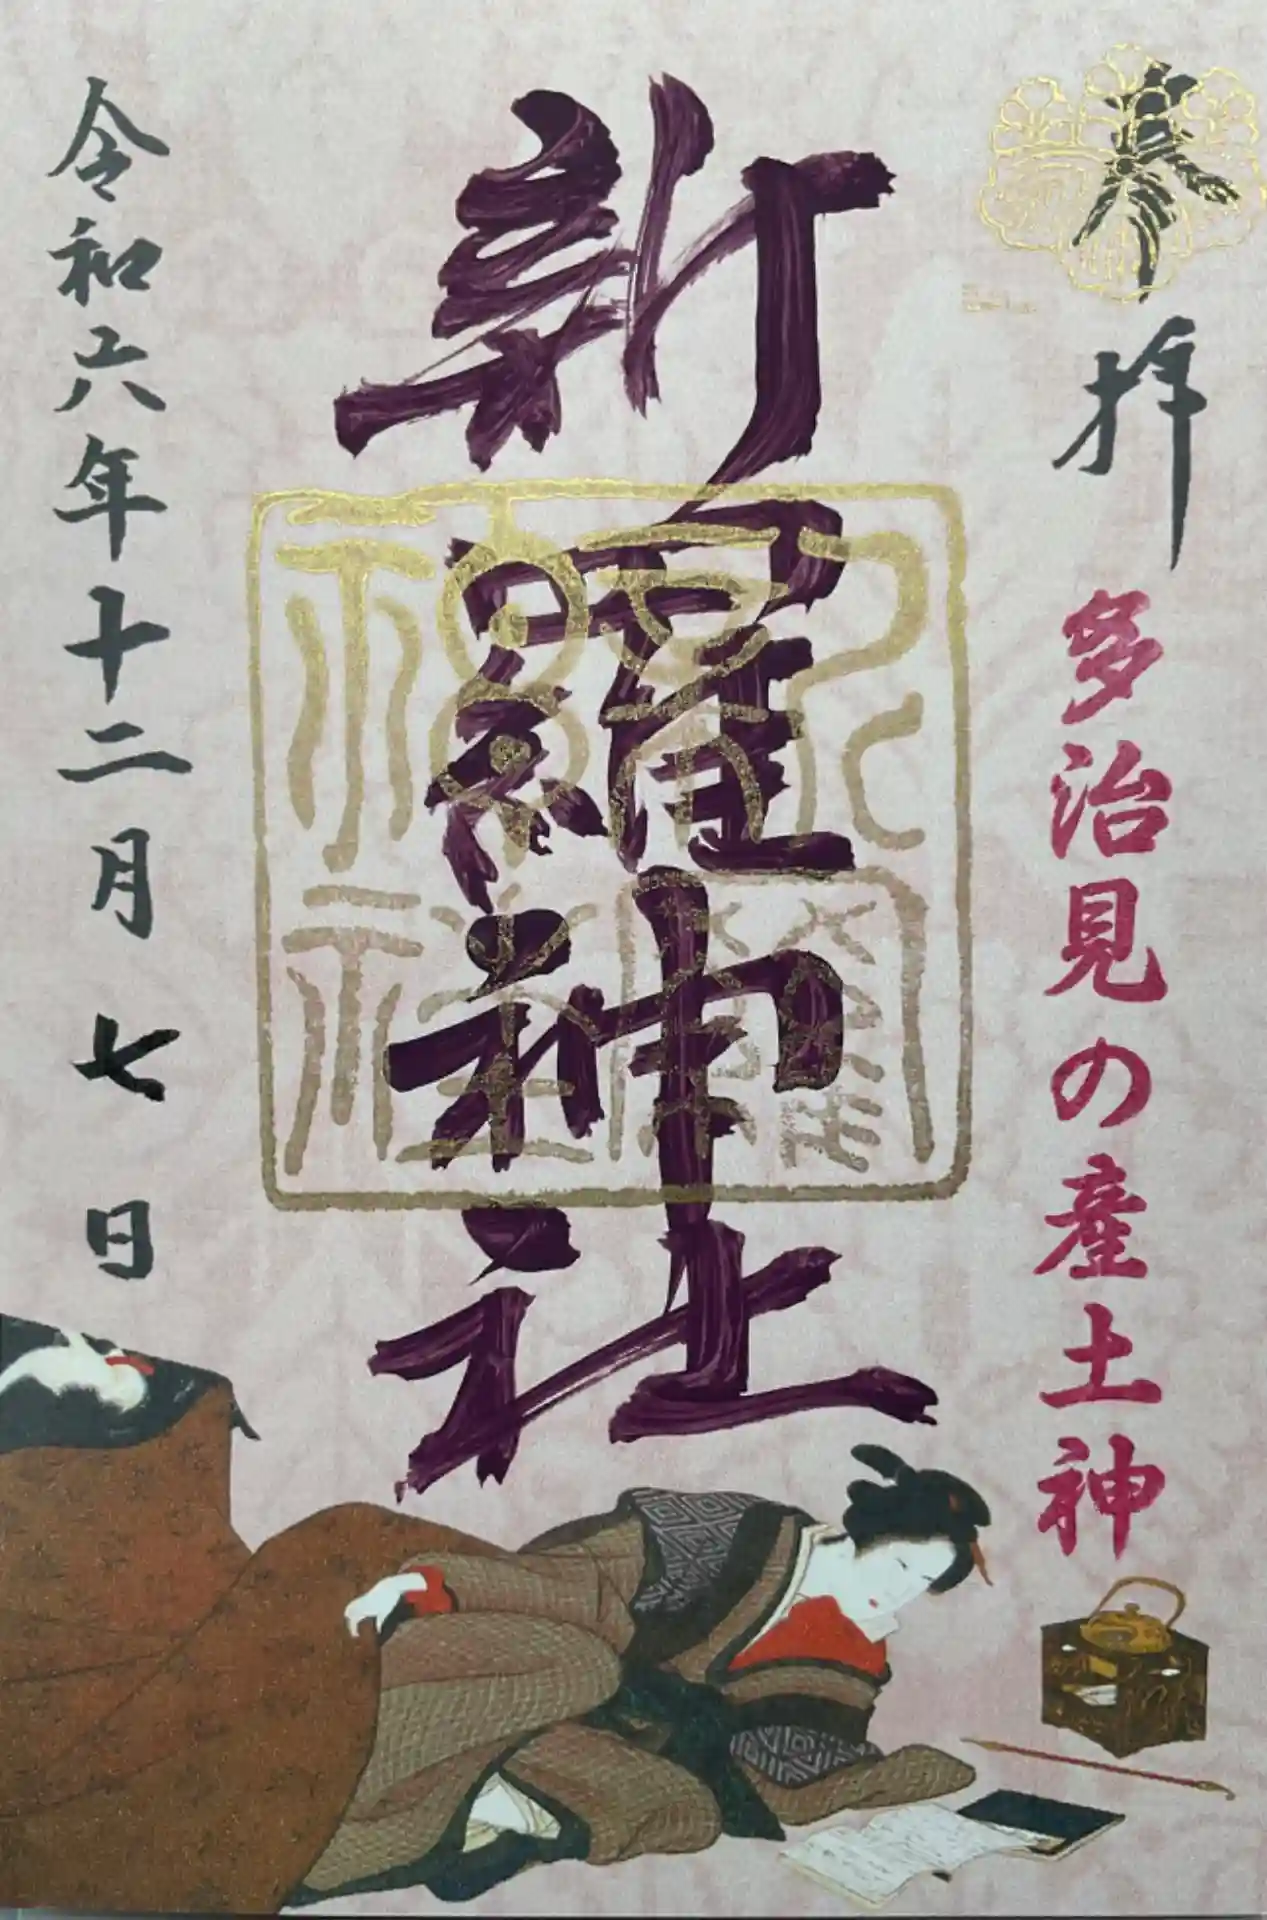 奉拝
多治見の産土神
新羅神社
令和六年十二月七日